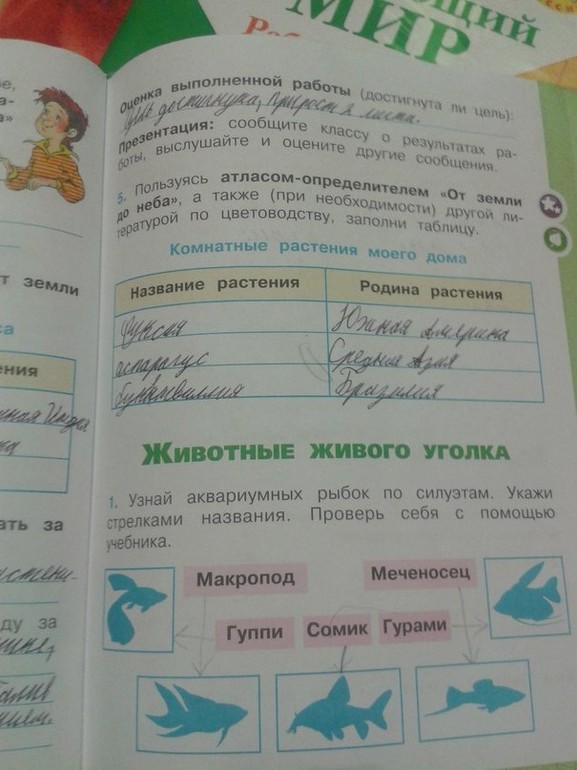 ющий
МИР
Ра
Оценка выполненной работы (достигнута ли цель):
Цель достигнута, прирост я листа.
Презентация: сообщите классу о результатах ра-
боты, выслушайте и оцените другие сообщения.
5. Пользуясь атласом-определителем «От земли
до неба», а также (при необходимости) другой ли-
тературой по цветоводству, заполни таблицу.
Комнатные растения моего дома
Название растения Родина растения
Фуксия Южная Америка
аспарагус Средняя Азия
Бразилия
ЖИВОТНЫЕ ЖИВОГО УГОЛКА
1. Узнай аквариумных рыбок по силуэтам. Укажи
стрелками названия. Проверь себя с помощью
учебника.
Макропод Меченосец
Гуппи Сомик Гурами
бе,
а-
а»
т земли
са
ения
ать за
ду за